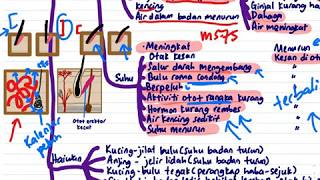 kencing
Air dalam badan menurun
Ginjal kurang ha
Dahaga
Air meningkat
ms75
Meningkat
Otak kesan
Salur darah mengembang
Bulu roma condong
Berpeluh
Aktiviti otot rangka kurang
Hormon kurang rember
Air kencing sedikit
Suhu menurun
Menurun
Kesan di ot
terbali
Suhu
Otot erektor
kecut
Kalenjar
peluh
Haiwan
Kucing-jilat bulu (suhu badan turun)
Anjing - jelir lidah (Suhu badan turun)
Kucing-bulu tegak (perangkap haba-sejuk)